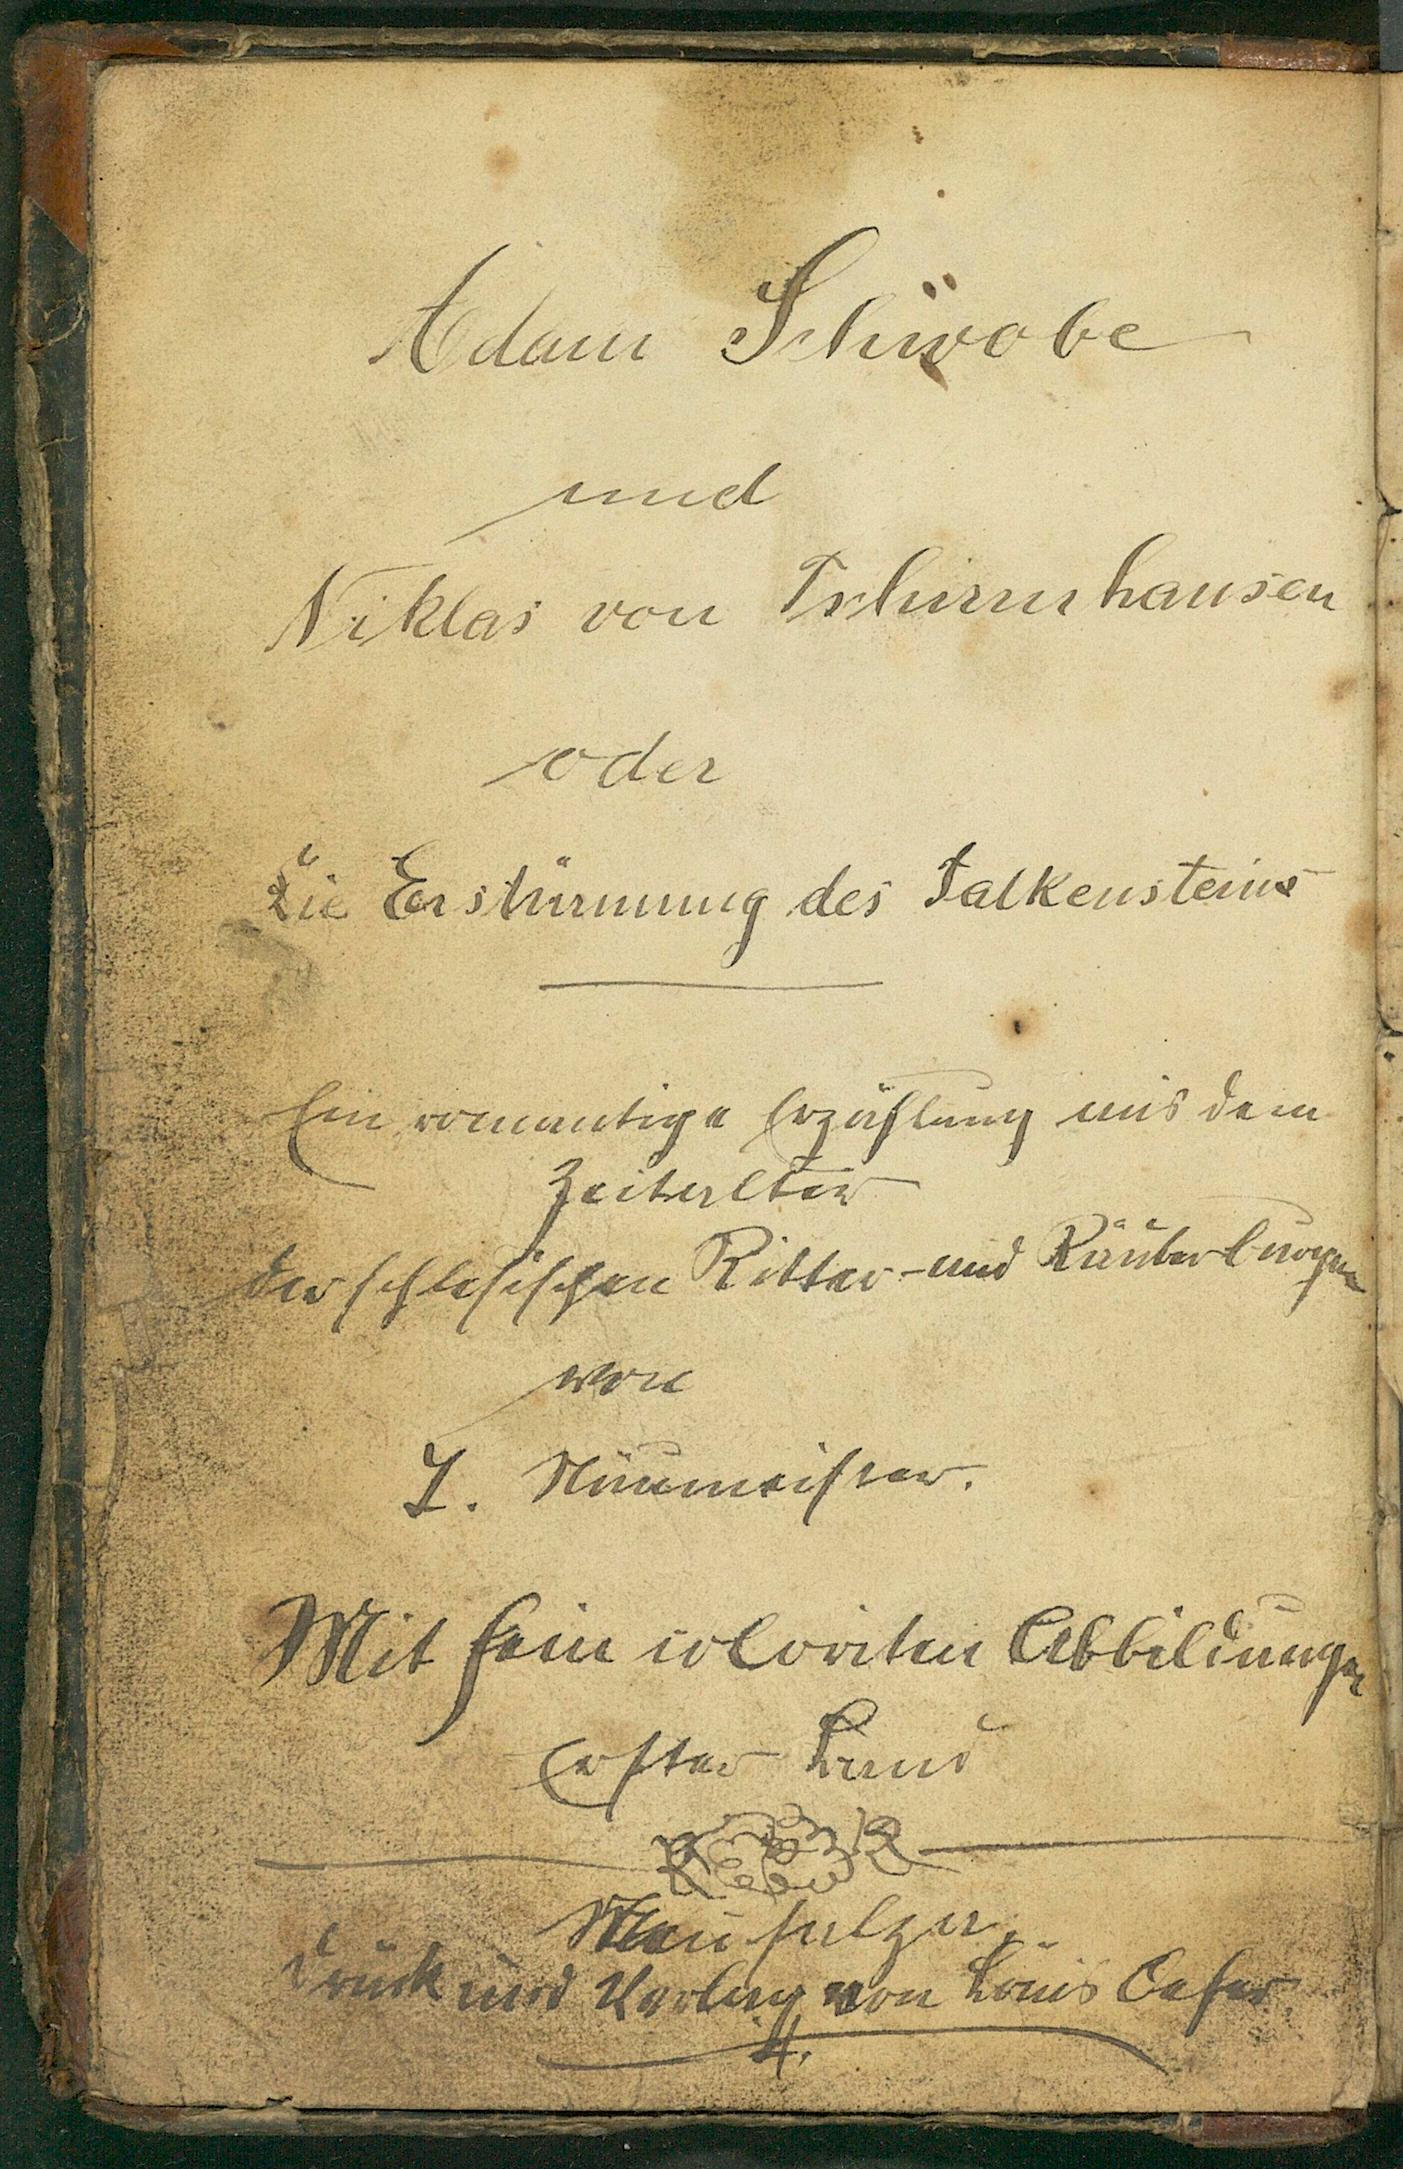 Adam Schwobe
und
Niklas von Tschirnhausen
oder
Die Erstürmung des Falkensteins
Ein romantige Erzählung aus dem
Zeitalter
der schlesischen Ritter- und Räuberburgen
von
I. Neumeister.
Mit fein coloriten Abbildungen
Erster Band
Neusalza.
Druck und Verlag von Louis Oeser